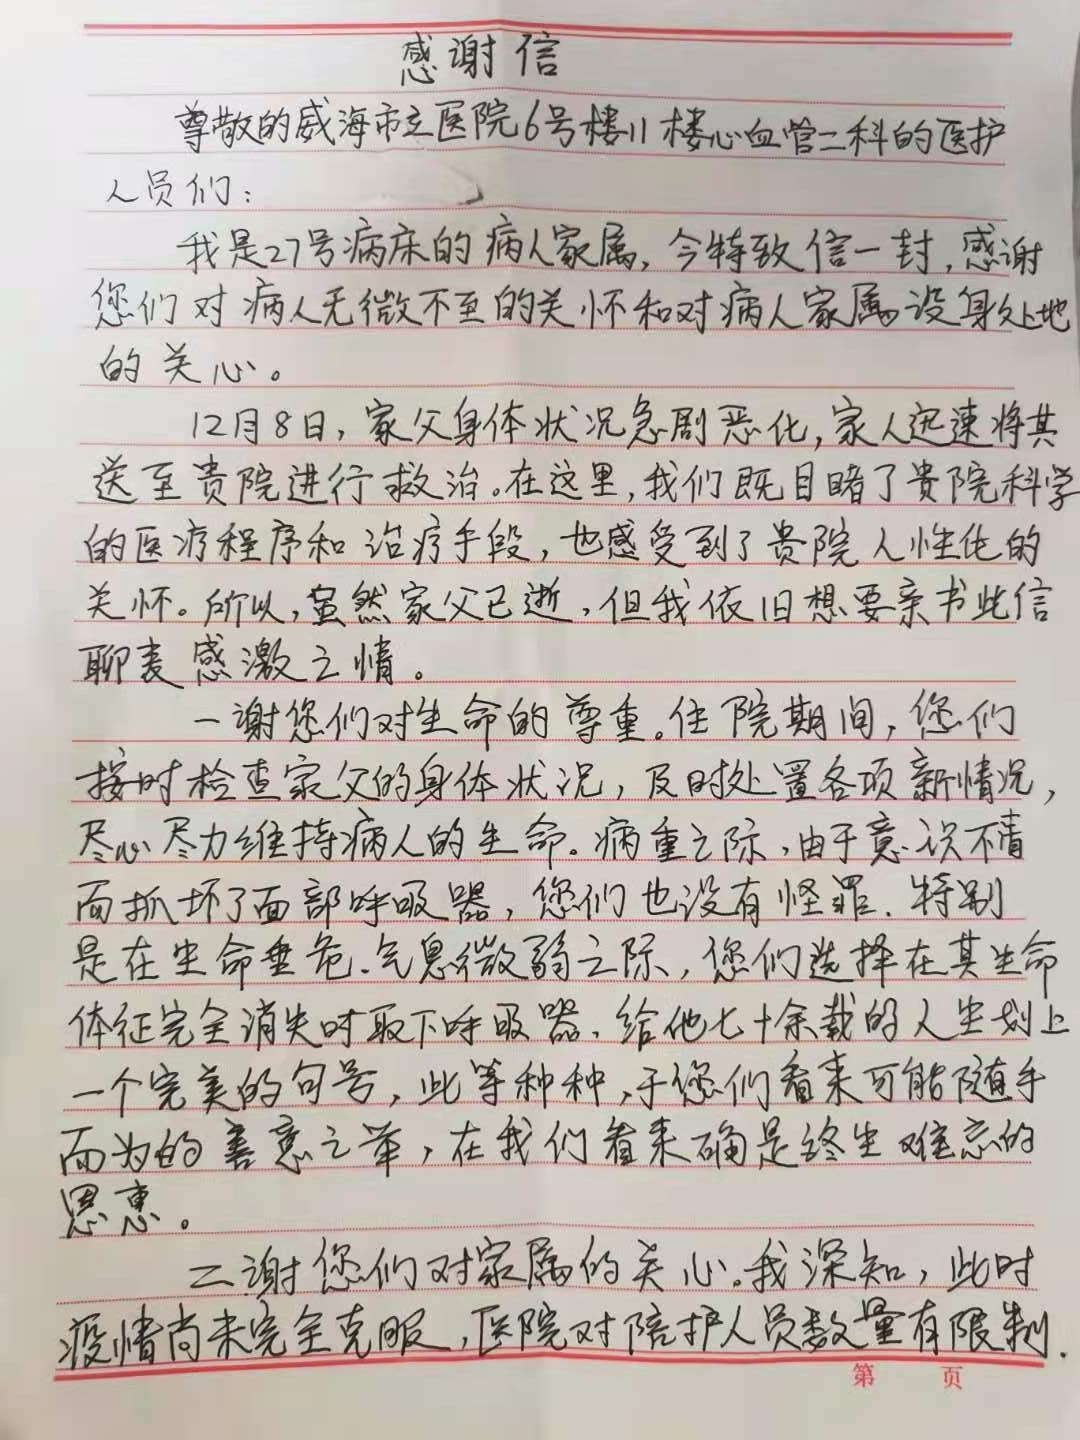 感谢信
尊敬的威海市立医院6号楼11楼心血管二科的医护
人员们：
我是27号病床的病人家属，今特致信一封，感谢
您们对病人无微不至的关怀和对病人家属设身处地
的关心。
12月8日，家父身体状况急剧恶化，家人迅速将其
送至贵院进行救治。在这里，我们既目睹了贵院科学
的医疗程序和治疗手段，也感受到了贵院人性化的
关怀。所以，虽然家父已逝，但我依旧想要亲书此信
聊表感激之情。
一谢您们对生命的尊重。住院期间，您们
按时检查家父的身体状况，及时处置各项新情况，
尽心尽力维持病人的生命。病重之际，由于意识不清
而抓坏了面部呼吸器，您们也没有怪罪．特别
是在生命垂危、气息微弱之际，您们选择在其生命
体征完全消失时取下呼吸器、给他七十余载的人生划上
一个完美的句号，此等种种，于您们看来可能随手
而为的善意之举，在我们看来确是终生难忘的
恩惠。
二谢您们对家属的关心。我深知，此时
疫情尚未完全克服，医院对陪护人员数量有限制．
第 页